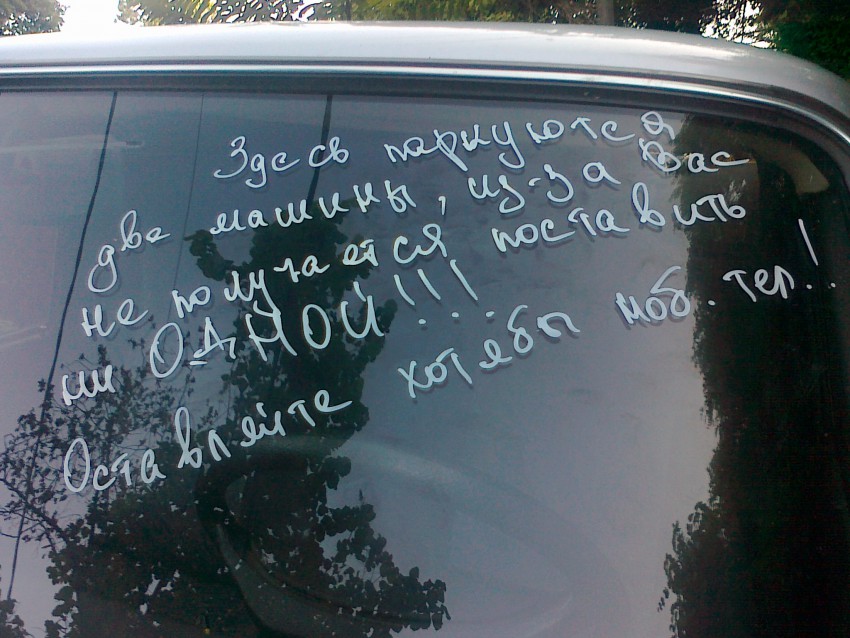 Здесь паркуются
две машины, из-за Вас
не получается поставить
ни ОДНОЙ!!!
Оставляйте хотябы моб. тел.!